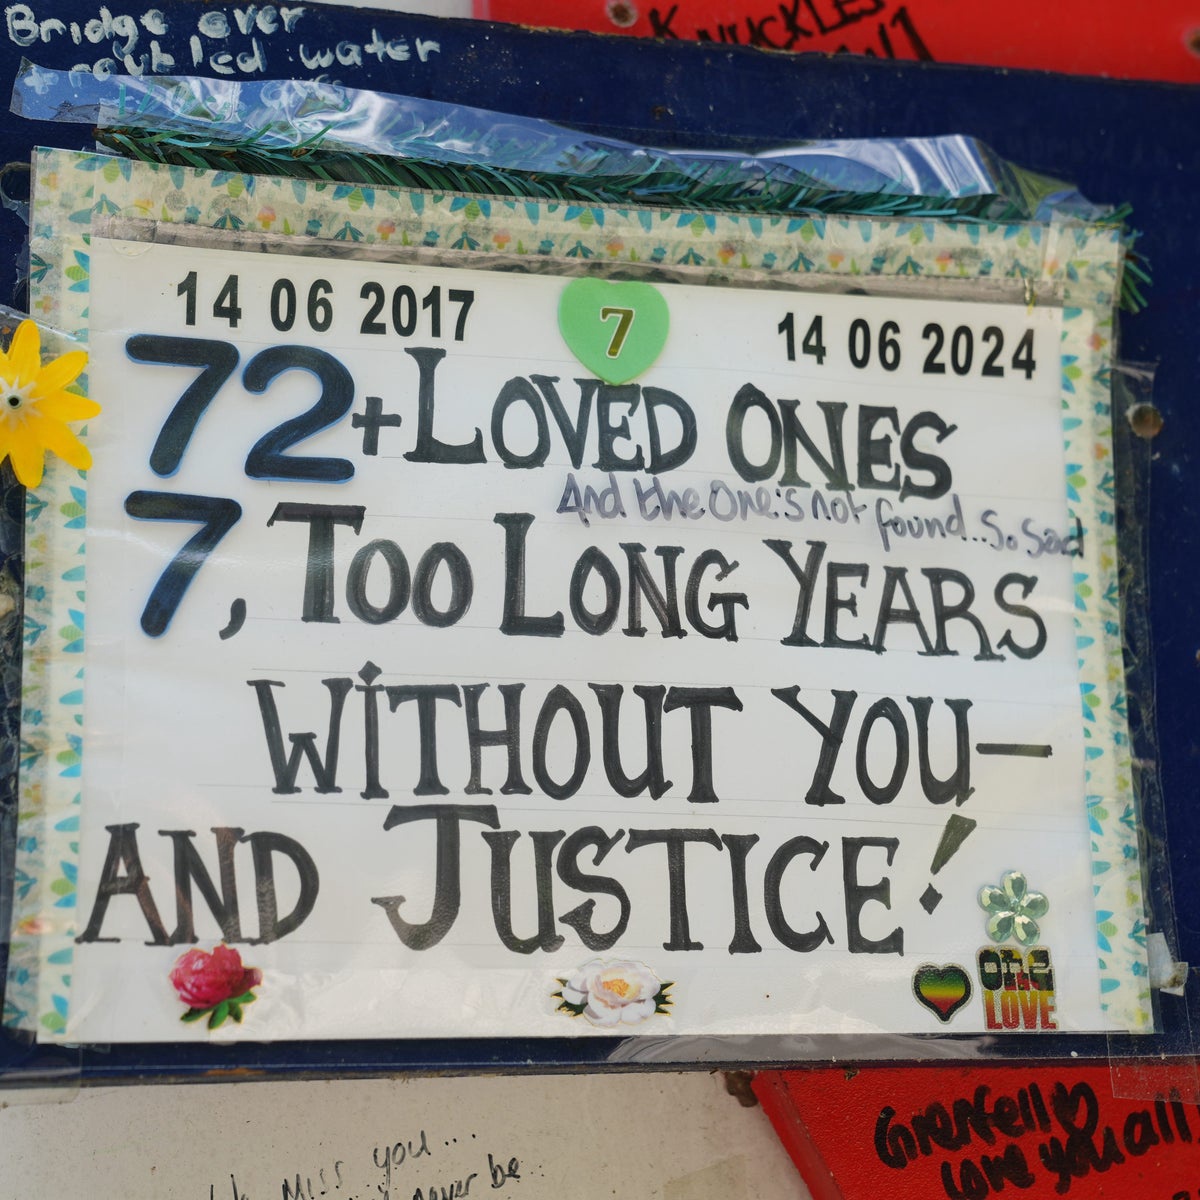 Bridge over
troubled water
KNUCKLES
14 06 2017
7
14 06 2024
72+ LOVED ONES
And the One's not found...So Sad
7, TOO LONG YEARS
WiTHOUT YOU—
AND JUSTICE!
ONE
LOVE
Miss you...
never be
Grenfell
love you all